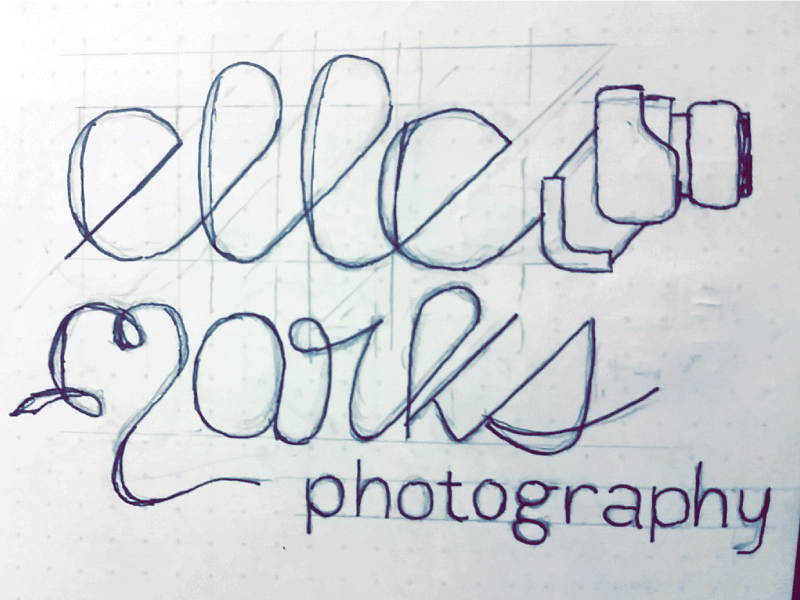 elle
Marks
photography